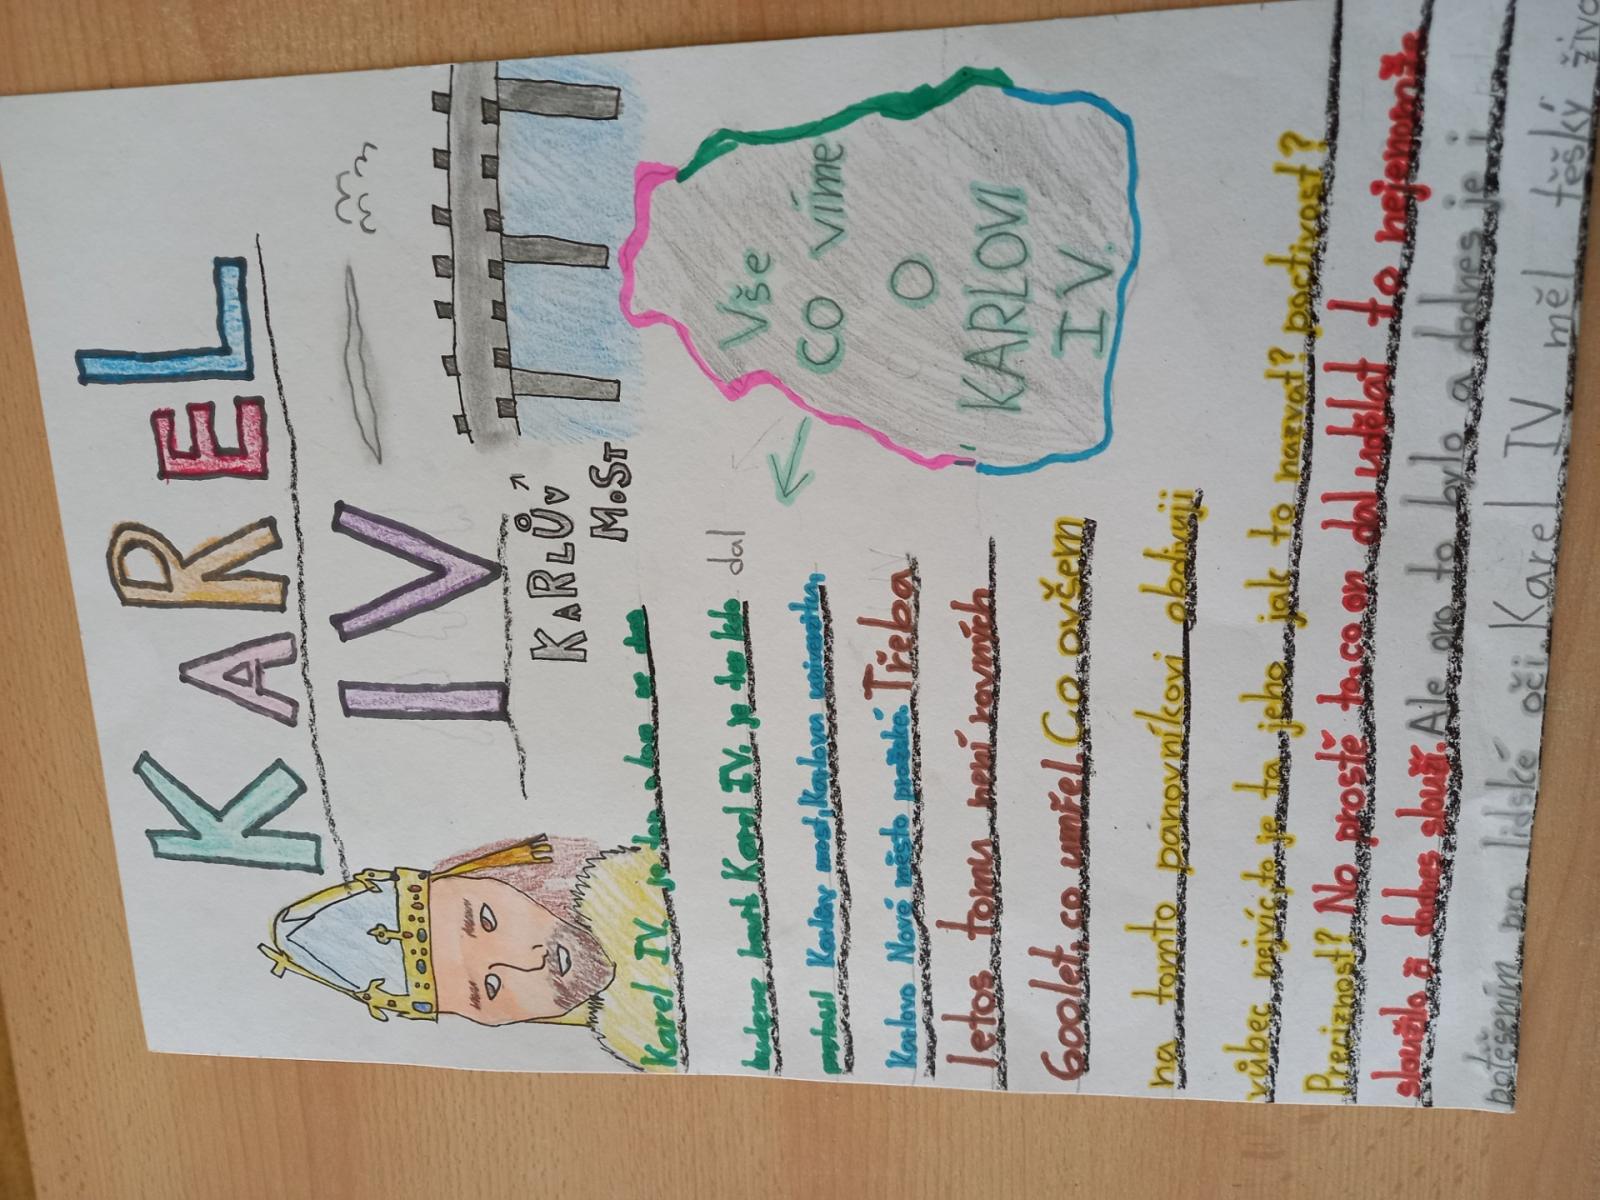 KAREL
IV
KARLŮV
MOST
Vše
CO VÍME
O
KARLOVI
IV.
Karel IV. je
dal
budeme Karel IV. je
postavil Karlův most, Karlova univerzita,
Karlovo Nové město pražské. Třeba
letos tomu není rovných
600let, co umřel. Co ovšem
na tomto panovníkovi obdivuji
vůbec nejvíc, to je ta jeho jak to nazvat? poctivost?
Preciznost? No prostě to, co on dal udělat to nejenomže
sloužilo či dodnes slouží. Ale ono to bylo a dodnes je i
potěšením pro lidské oči. Karel IV měl těšký